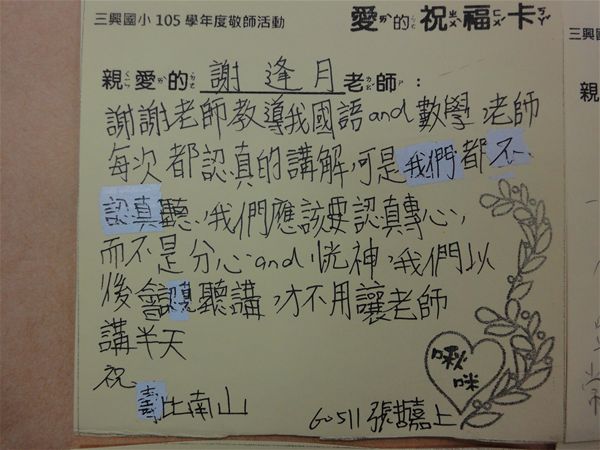 三興國小 105 學年度敬師活動
愛的祝福卡
親愛的 謝逢月 老師：
謝謝老師教導我國語and數學，老師
每次都認真的講解，可是我們都不
認真聽，我們應該要認真專心，
而不是分心and恍神，我們以
後會認真聽講，才不用讓老師
講半天
祝
壽比南山
啾咪
60511 張喆嘉上
三興國
親